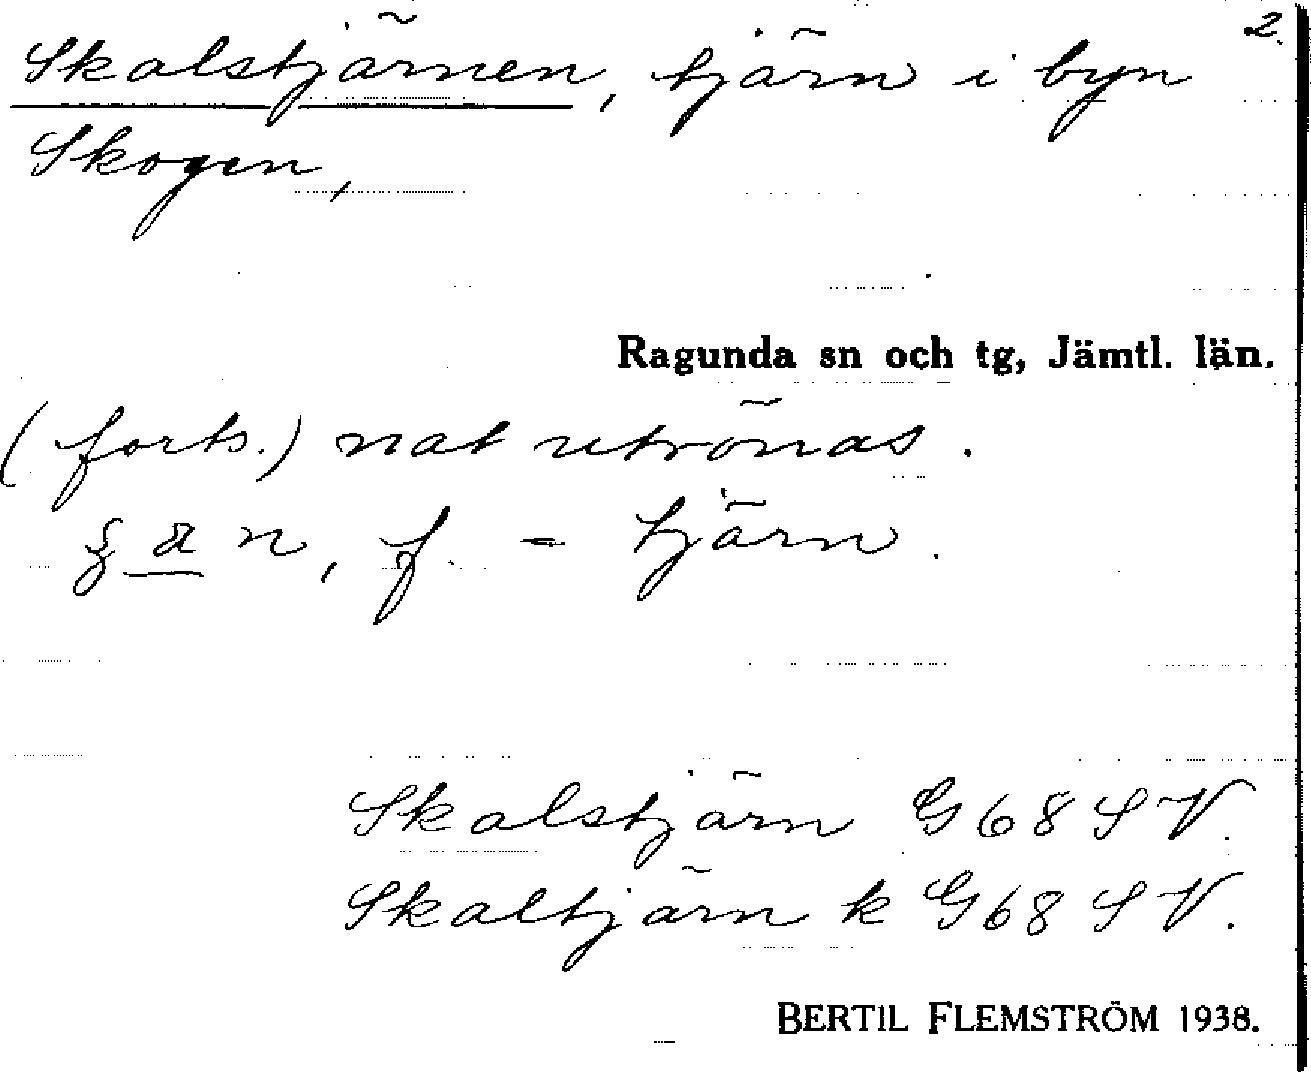 2.
Skalstjärnen, tjärn i byn
Skogen,
Ragunda sn och tg, Jämtl. län.
(forts.) nat utrönas.
n, f. = tjärn.
Skalstjärn G 68 SV.
Skaltjärn k G 68 SV.
BERTIL FLEMSTRÖM 1938.